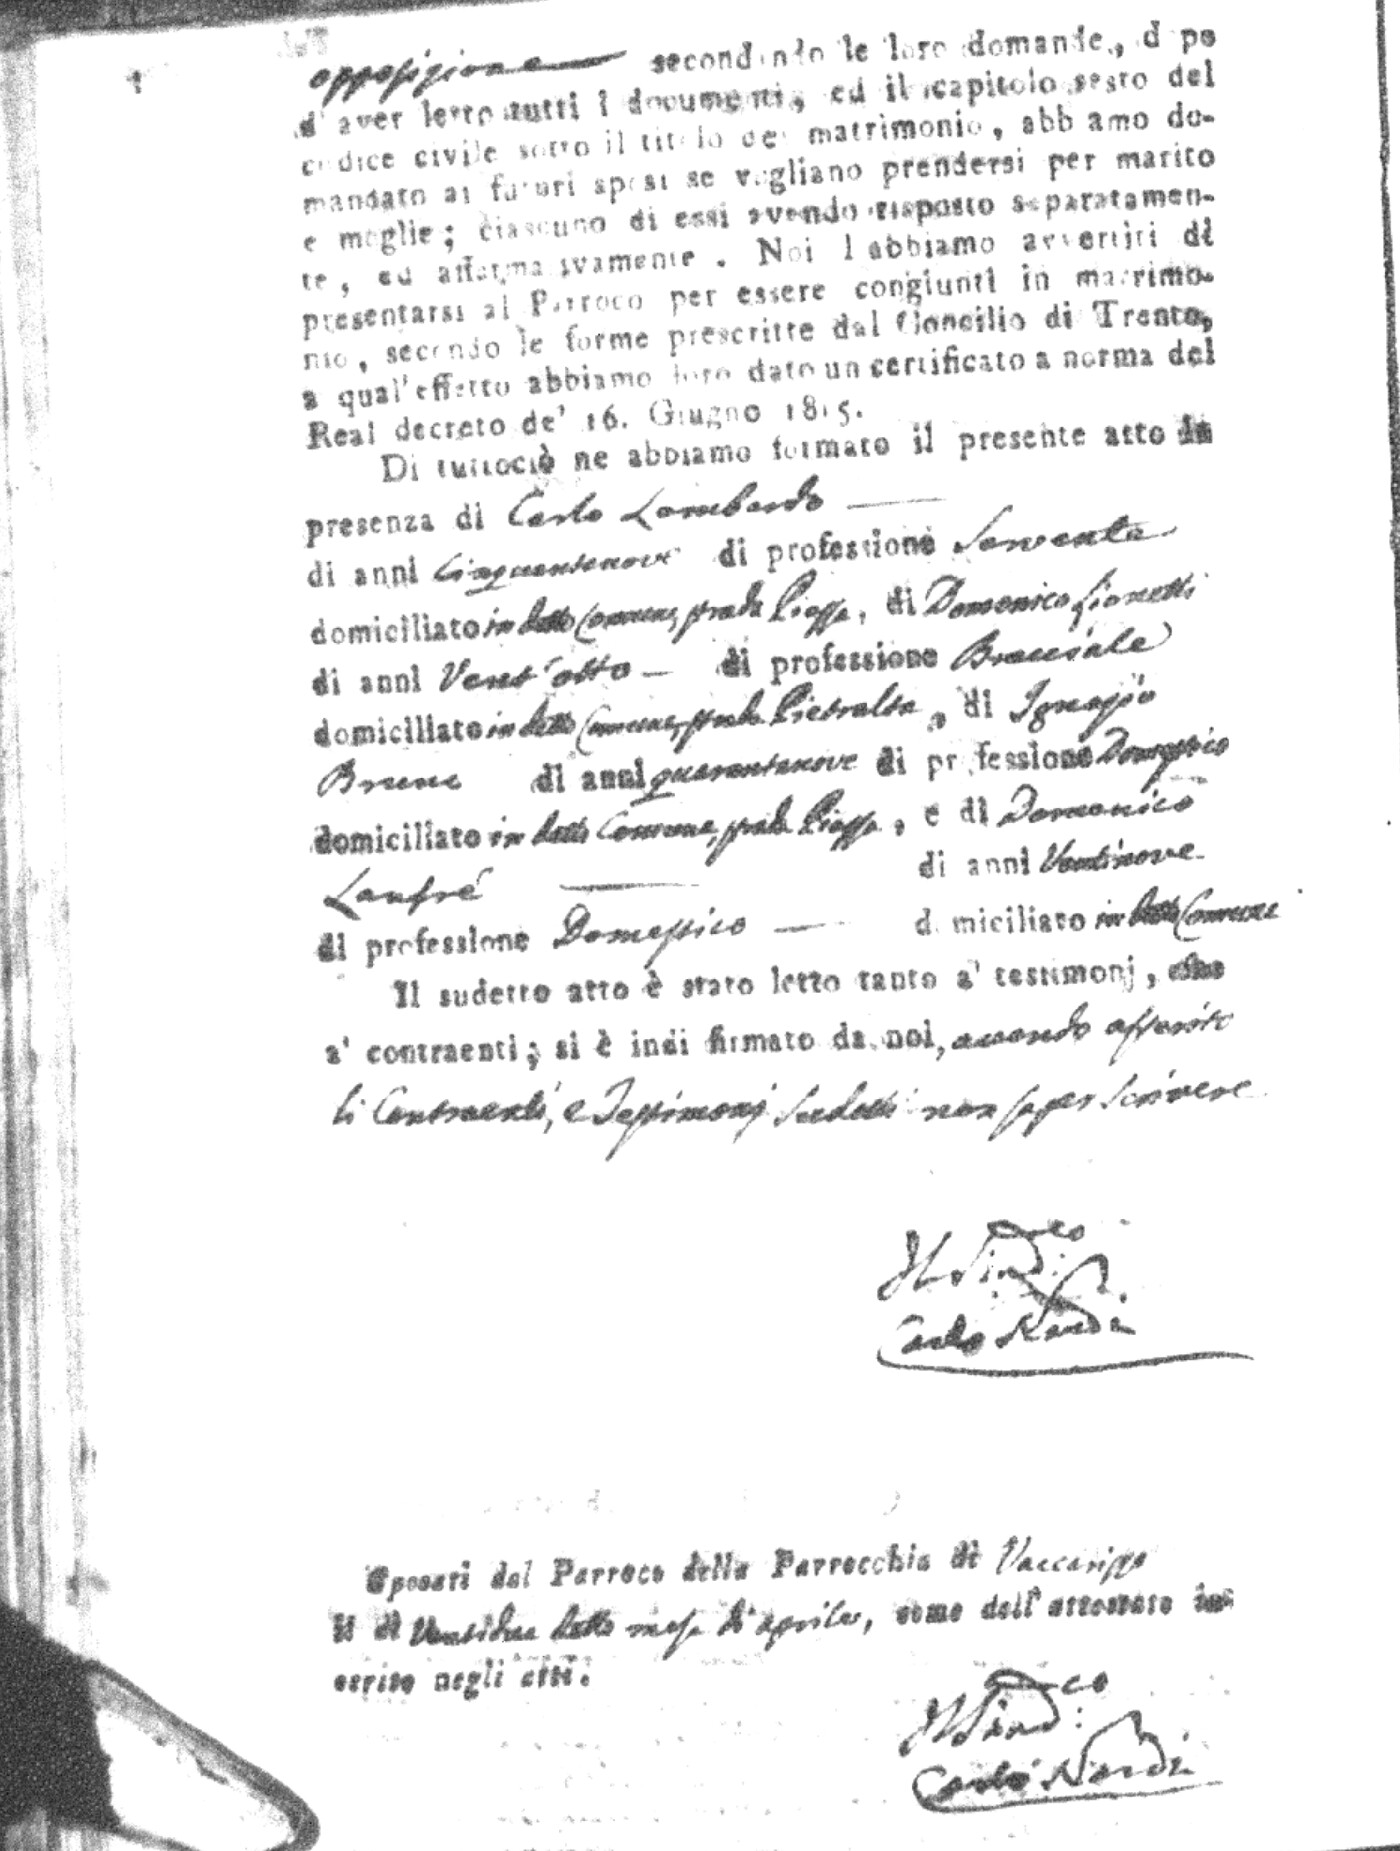 opposizione secondando le loro domande, dopo
d'aver letto tutti i documenti, ed il capitolo sesto del
codice civile sotto il titolo del matrimonio, abbiamo do-
mandato ai futuri sposi se vogliano prendersi per marito
e moglie; ciascuno di essi avendo risposto separatamen-
te, ed affermativamente. Noi l'abbiamo avvertiti di
presentarsi al Parroco per essere congiunti in matrimo-
nio, secondo le forme prescritte dal Concilio di Trento,
a qual'effetto abbiamo loro dato un certificato a norma del
Real decreto de' 16. Giugno 1815.
Di tuttociò ne abbiamo formato il presente atto in
presenza di Carlo Lombardo
di anni Cinquantanove di professione Servente
domiciliato in detto Comune, strada Piazza, di Domenico Lionetti
di anni Vent'otto di professione Bracciale
domiciliato in detto Comune, strada Pietralta, di Ignazio
Bruno di anni quarantanove di professione Domestico
domiciliato in detto Comune, strada Piazza, e di Domenico
Lanfré di anni Ventinove
di professione Domestico domiciliato in detto Comune
Il sudetto atto è stato letto tanto a' testimonj, che
a' contraenti; si è indi firmato da noi, avendo asserito
li Contraenti, e Testimonj sudetti non saper scrivere
Il Sind:co
Carlo Nardi
Sposati dal Parroco della Parrocchia di Vaccarizzo
li di Ventidue detto mese di aprile, come dall'attestato in-
serito negli atti.
Il Sind:co
Carlo Nardi